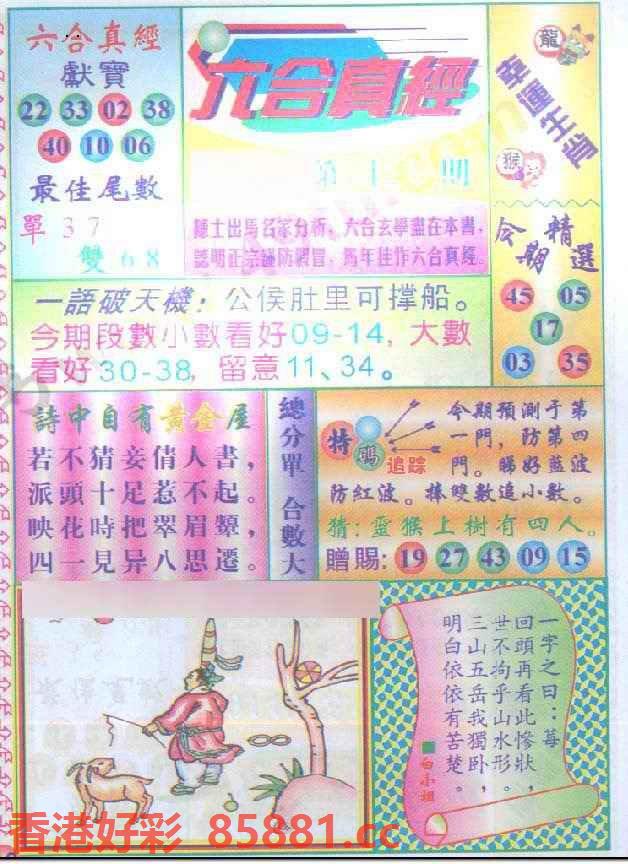 六合真經
獻寶
22 33 02 38
40 10 06
最佳尾數
單 3 7
雙 6 8
六合真經
第十 期
陳士出馬名家分析，六合玄學盡在本書，
認明正宗謹防假冒，馬年佳作六合真經。
龍
幸運生肖
猴
今期精選
45 05
17
03 35
一語破天機：公侯肚里可撑船。
今期段數小數看好09-14，大數
看好30-38，留意11、34。
詩中自有黃金屋
若不猜妾倩人書，
派頭十足惹不起。
映花時把翠眉顰，
四一見异八思遷。
總分單 合數大
特碼追踪
今期預測于第
一門，防第四
門。睇好藍波
防紅波。捧雙數追小數。
猜：靈猴上樹有四人。
贈賜：19 27 43 09 15
一字之曰：莓
回頭再看此慘狀，
世不拘乎山水形。
三山五岳我獨卧，
明白依依有苦楚。
■白小姐
香港好彩 85881.cc